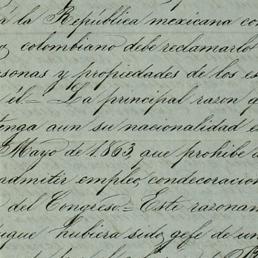 á la República mexicana con
colombiano debe reclamarlo
rsonas y propiedades de los es
él.= La principal razon d
tenga aun su nacionalidad e
Mayo de 1863, que prohibe a
admitir empleo, condecoracion
del Congreso.= Este razonam
que hubiera sido gefe de un